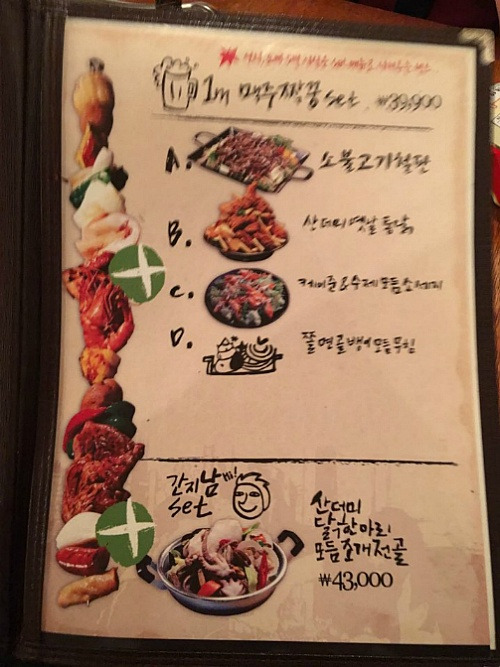 1m 맥주짝꿍 set ₩39,900
A. 소불고기철판
B. 산더미옛날통닭
C. 케이준&수제모듬소세지
D. 쫄면골뱅이모듬무침
간지남
set
산더미
달수한마리
모듬조개전골
₩43,000